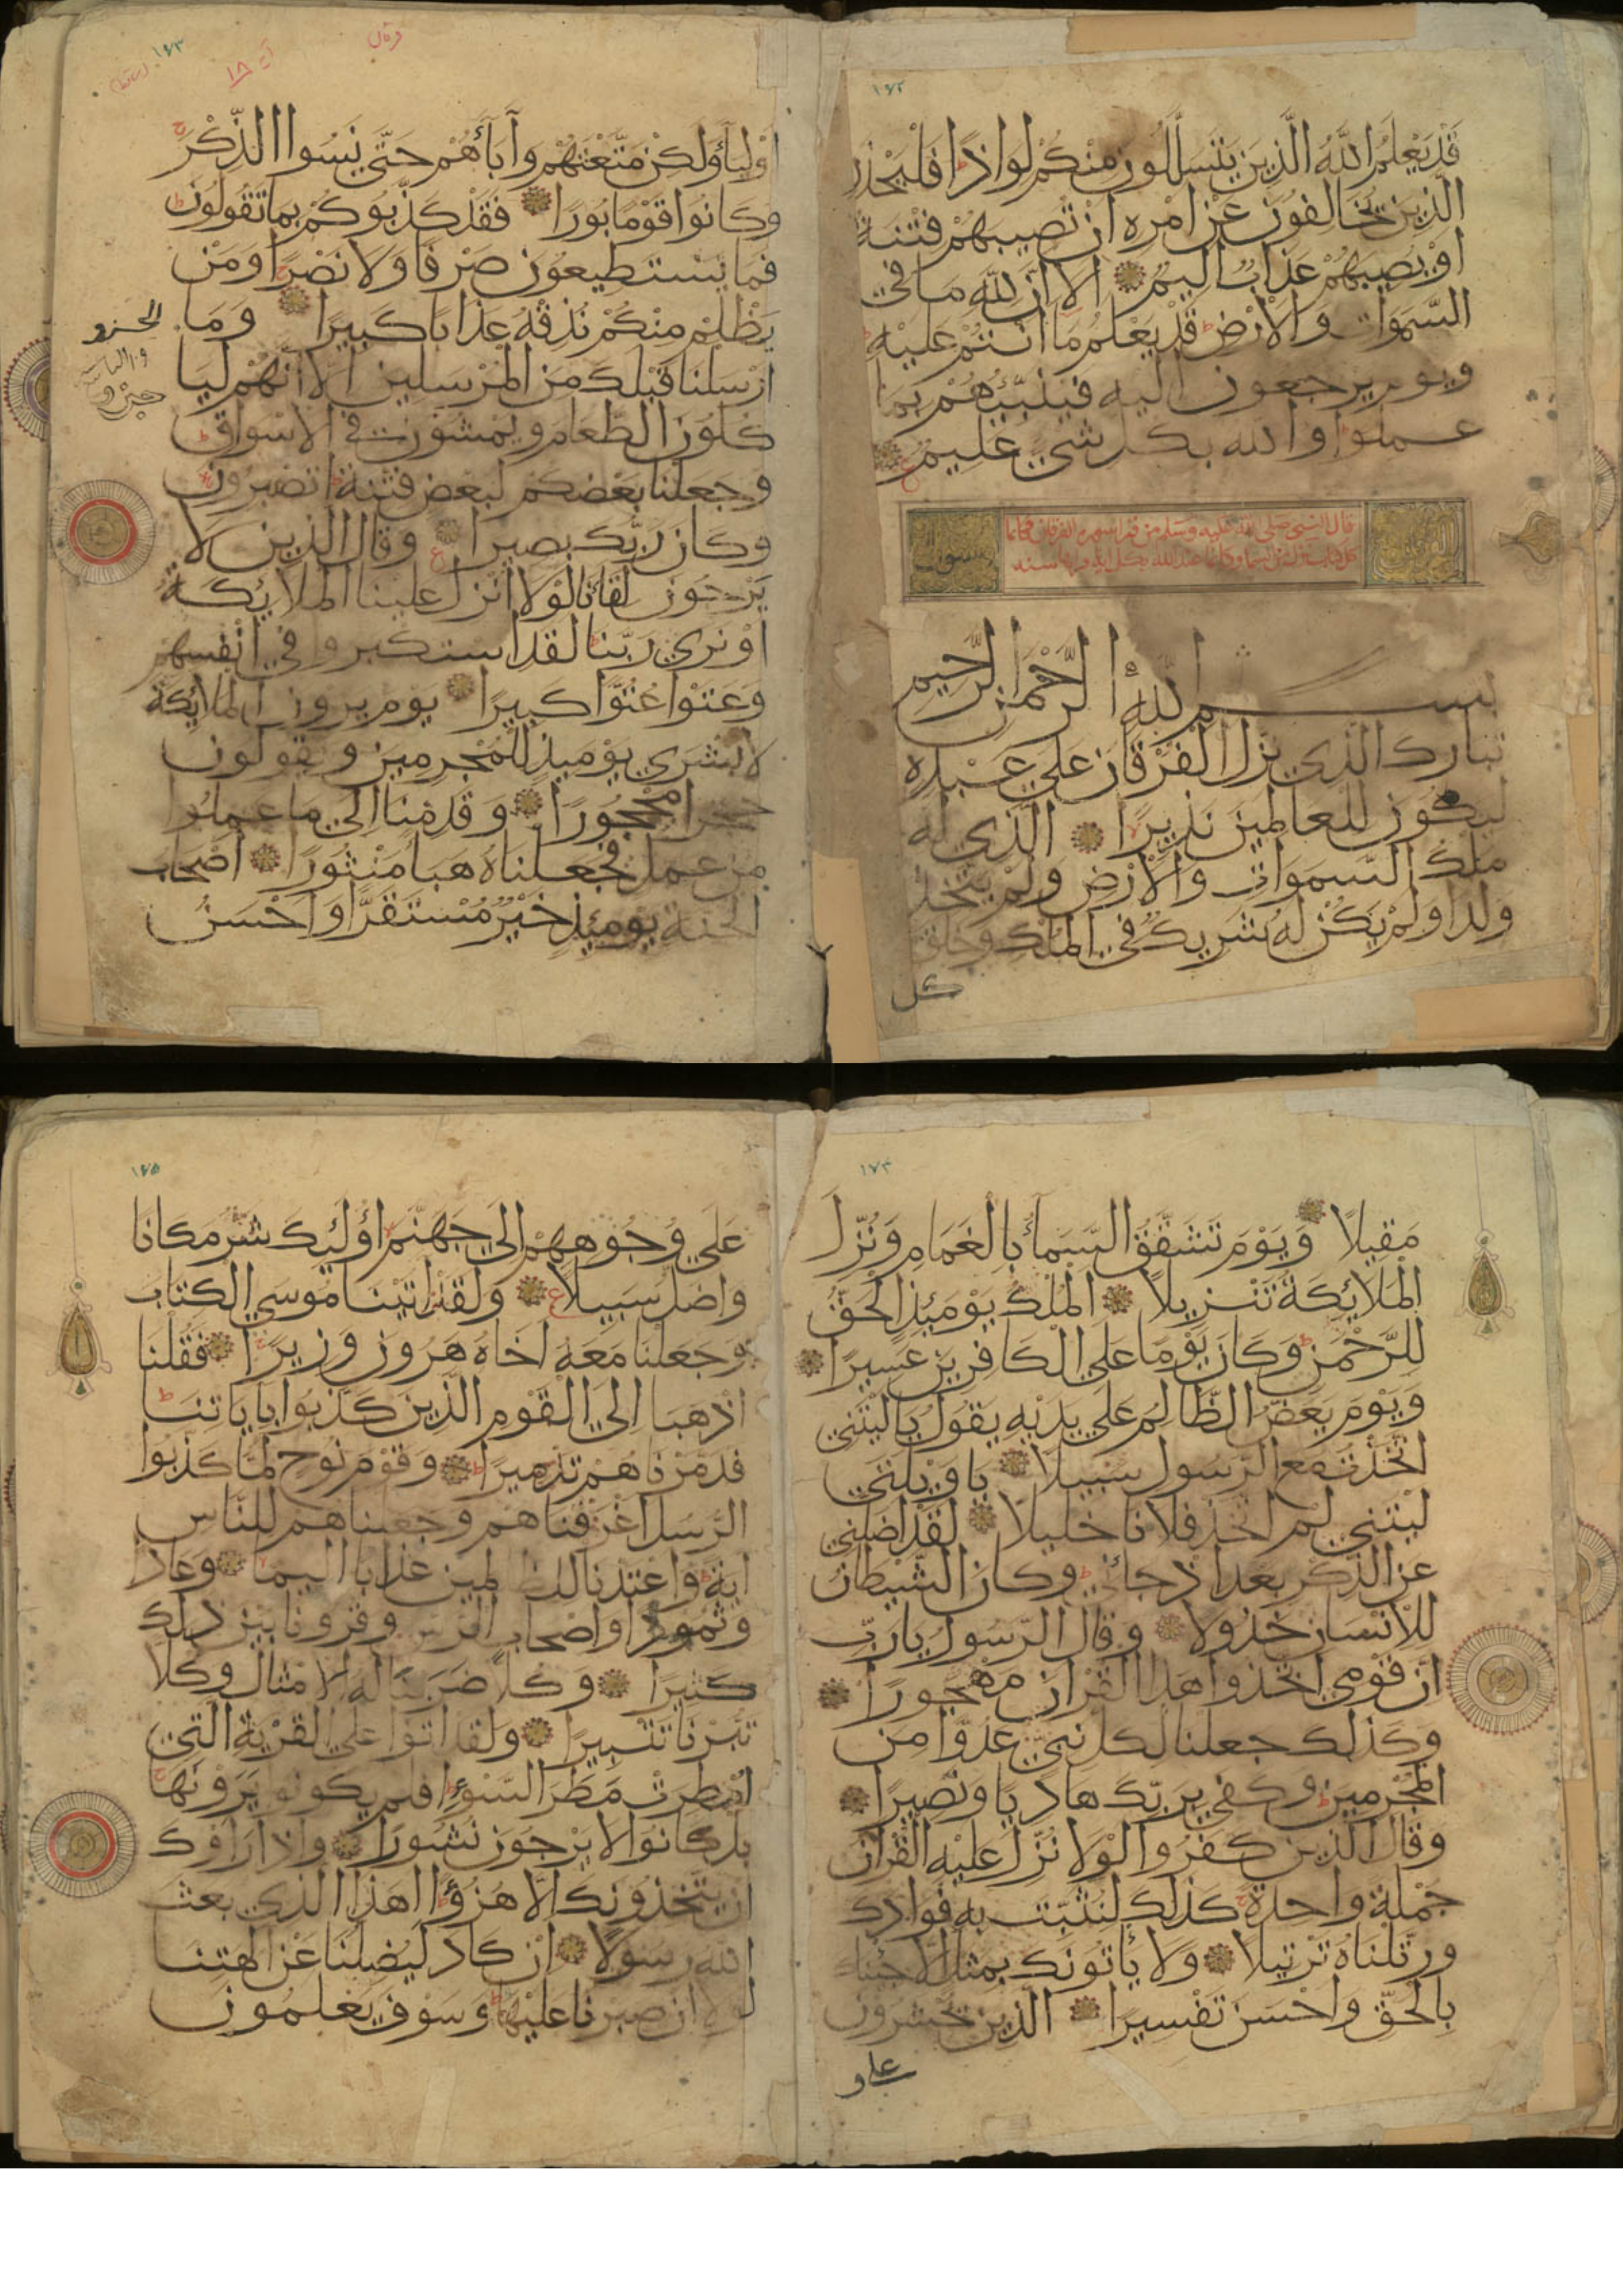 ١٧٢
قَدْ يَعْلَمُ اللَّهُ الَّذِينَ يَتَسَلَّلُونَ مِنْكُمْ لِوَاذًا فَلْيَحْذَرِ
الَّذِينَ يُخَالِفُونَ عَنْ أَمْرِهِ أَنْ تُصِيبَهُمْ فِتْنَةٌ
أَوْ يُصِيبَهُمْ عَذَابٌ أَلِيمٌ أَلَا إِنَّ لِلَّهِ مَا فِي
السَّمَوَاتِ وَالْأَرْضِ قَدْ يَعْلَمُ مَا أَنْتُمْ عَلَيْهِ
وَيَوْمَ يُرْجَعُونَ إِلَيْهِ فَيُنَبِّئُهُمْ بِمَا
عَمِلُوا وَاللَّهُ بِكُلِّ شَيْءٍ عَلِيمٌ
قال النبي صلى الله عليه وسلم من قرا سورة الفرقان فكانما
بسم الله الرَّحْمَنِ الرَّحِيمِ
تبارك الَّذِي نَزَّلَ الْفُرْقَانَ عَلَى عَبْدِهِ
لِيَكُونَ لِلْعَالَمِينَ نَذِيرًا الَّذِي لَهُ
مُلْكُ السَّمَوَاتِ وَالْأَرْضِ وَلَمْ يَتَّخِذْ
وَلَدًا وَلَمْ يَكُنْ لَهُ شَرِيكٌ فِي الْمُلْكِ وَخَلَقَ
كل
١٧٣
١٨
أَوْلِيَاءَ وَلَكِنْ مَتَّعْتَهُمْ وَآبَاءَهُمْ حَتَّى نَسُوا الذِّكْرَ
وَكَانُوا قَوْمًا بُورًا فَقَدْ كَذَّبُوكُمْ بِمَا تَقُولُونَ
فَمَا يَسْتَطِيعُونَ صَرْفًا وَلَا نَصْرًا وَمَنْ
يَظْلِمْ مِنْكُمْ نُذِقْهُ عَذَابًا كَبِيرًا وَمَا
أَرْسَلْنَا قَبْلَكَ مِنَ الْمُرْسَلِينَ إِلَّا أَنَّهُمْ لَيَا
كُلُونَ الطَّعَامَ وَيَمْشُونَ فِي الْأَسْوَاقِ
وَجَعَلْنَا بَعْضَكُمْ لِبَعْضٍ فِتْنَةً أَتَصْبِرُونَ
وَكَانَ رَبُّكَ بَصِيرًا وَقَالَ الَّذِينَ لَا
يَرْجُونَ لِقَاءَنَا لَوْلَا أُنْزِلَ عَلَيْنَا الْمَلَائِكَةُ
أَوْ نَرَى رَبَّنَا لَقَدِ اسْتَكْبَرُوا فِي أَنْفُسِهِمْ
وَعَتَوْا عُتُوًّا كَبِيرًا يَوْمَ يَرَوْنَ الْمَلَائِكَةَ
لَا بُشْرَى يَوْمَئِذٍ لِلْمُجْرِمِينَ وَيَقُولُونَ
حِجْرًا مَحْجُورًا وَقَدِمْنَا إِلَى مَا عَمِلُوا
مِنْ عَمَلٍ فَجَعَلْنَاهُ هَبَاءً مَنْثُورًا أَصْحَابُ
الْجَنَّةِ يَوْمَئِذٍ خَيْرٌ مُسْتَقَرًّا وَأَحْسَنُ
١٧٤
مَقِيلًا وَيَوْمَ تَشَقَّقُ السَّمَاءُ بِالْغَمَامِ وَنُزِّلَ
الْمَلَائِكَةُ تَنْزِيلًا الْمُلْكُ يَوْمَئِذٍ الْحَقُّ
لِلرَّحْمَنِ وَكَانَ يَوْمًا عَلَى الْكَافِرِينَ عَسِيرًا
وَيَوْمَ يَعَضُّ الظَّالِمُ عَلَى يَدَيْهِ يَقُولُ يَا لَيْتَنِي
اتَّخَذْتُ مَعَ الرَّسُولِ سَبِيلًا يَا وَيْلَتَى
لَيْتَنِي لَمْ أَتَّخِذْ فُلَانًا خَلِيلًا لَقَدْ أَضَلَّنِي
عَنِ الذِّكْرِ بَعْدَ إِذْ جَاءَنِي وَكَانَ الشَّيْطَانُ
لِلْإِنْسَانِ خَذُولًا وَقَالَ الرَّسُولُ يَا رَبِّ
إِنَّ قَوْمِي اتَّخَذُوا هَذَا الْقُرْآنَ مَهْجُورًا
وَكَذَلِكَ جَعَلْنَا لِكُلِّ نَبِيٍّ عَدُوًّا مِنَ
الْمُجْرِمِينَ وَكَفَى بِرَبِّكَ هَادِيًا وَنَصِيرًا
وَقَالَ الَّذِينَ كَفَرُوا لَوْلَا نُزِّلَ عَلَيْهِ الْقُرْآنُ
جُمْلَةً وَاحِدَةً كَذَلِكَ لِنُثَبِّتَ بِهِ فُؤَادَكَ
وَرَتَّلْنَاهُ تَرْتِيلًا وَلَا يَأْتُونَكَ بِمَثَلٍ إِلَّا جِئْنَاكَ
بِالْحَقِّ وَأَحْسَنَ تَفْسِيرًا الَّذِينَ يُحْشَرُونَ
على و
١٧٥
عَلَى وُجُوهِهِمْ إِلَى جَهَنَّمَ أُولَئِكَ شَرٌّ مَكَانًا
وَأَضَلُّ سَبِيلًا وَلَقَدْ آتَيْنَا مُوسَى الْكِتَابَ
وَجَعَلْنَا مَعَهُ أَخَاهُ هَرُونَ وَزِيرًا فَقُلْنَا
اذْهَبَا إِلَى الْقَوْمِ الَّذِينَ كَذَّبُوا بِآيَاتِنَا
فَدَمَّرْنَاهُمْ تَدْمِيرًا وَقَوْمَ نُوحٍ لَمَّا كَذَّبُوا
الرُّسُلَ أَغْرَقْنَاهُمْ وَجَعَلْنَاهُمْ لِلنَّاسِ
آيَةً وَأَعْتَدْنَا لِلظَّالِمِينَ عَذَابًا أَلِيمًا وَعَادًا
وَثَمُودَا وَأَصْحَابَ الرَّسِّ وَقُرُونًا بَيْنَ ذَلِكَ
كَثِيرًا وَكُلًّا ضَرَبْنَا لَهُ الْأَمْثَالَ وَكُلًّا
تَبَّرْنَا تَتْبِيرًا وَلَقَدْ أَتَوْا عَلَى الْقَرْيَةِ الَّتِي
أُمْطِرَتْ مَطَرَ السَّوْءِ أَفَلَمْ يَكُونُوا يَرَوْنَهَا
بَلْ كَانُوا لَا يَرْجُونَ نُشُورًا وَإِذَا رَأَوْكَ
إِنْ يَتَّخِذُونَكَ إِلَّا هُزُؤًا أَهَذَا الَّذِي بَعَثَ
اللَّهُ رَسُولًا إِنْ كَادَ لَيُضِلُّنَا عَنْ آلِهَتِنَا
لَوْلَا أَنْ صَبَرْنَا عَلَيْهَا وَسَوْفَ يَعْلَمُونَ